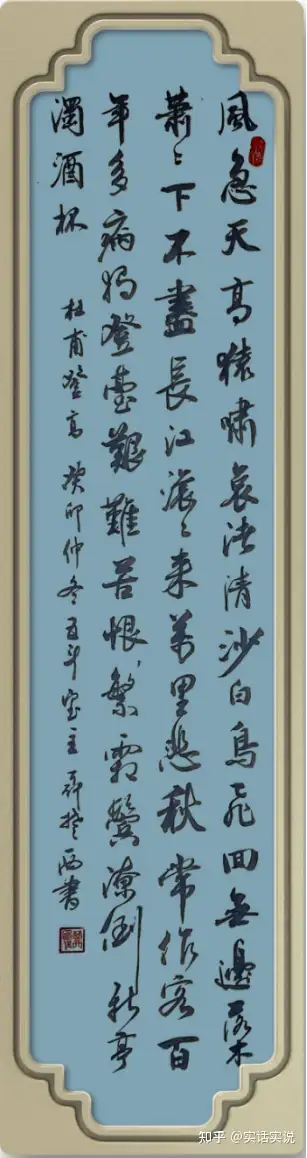 風急天高猿嘯哀渚清沙白鳥飛回無邊落木
蕭〻下不盡長江滚〻来萬里悲秋常作客百
年多病獨登臺艱難苦恨繁霜鬢潦倒新亭
濁酒杯
杜甫登高 癸卯仲冬五斗室主 西書
知乎 @实话实说